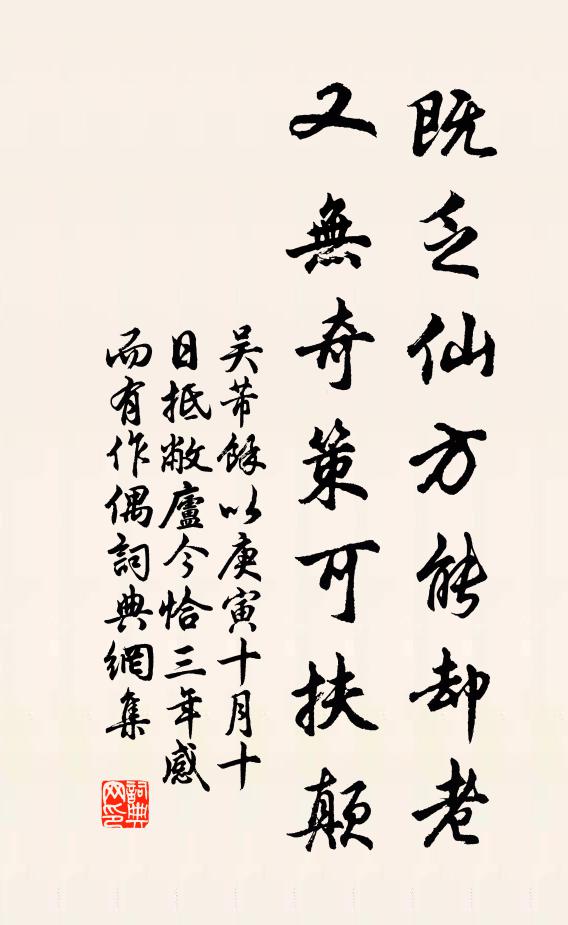 既乏仙方能却老
又無奇策可扶顛
吴芾餘以庚寅十月十
日抵敝廬今恰三年感
而有作偶詞典網集
詞典
网印